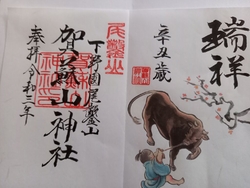 瑞祥
辛丑歳
下野國尾鑿山
賀蘇山神社
奉拝 令和三年